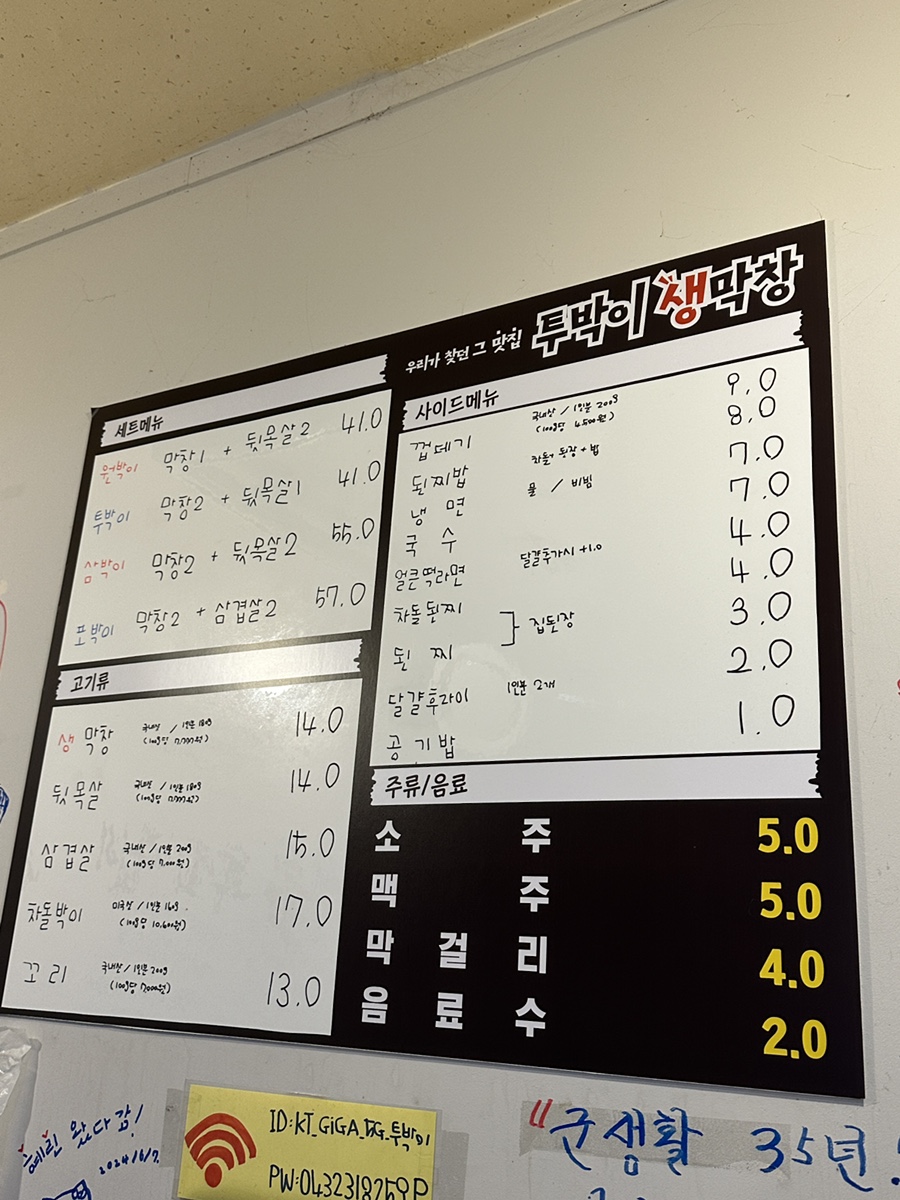 우리가 찾던 그 맛집 투박이 생막창
세트메뉴
원박이 막창1 + 뒷목살2 41.0
투박이 막창2 + 뒷목살1 41.0
삼박이 막창2 + 뒷목살2 55.0
포박이 막창2 + 삼겹살2 57.0
고기류
생막창 국내산 / 1인분 180g 14.0
(100g당 7,777원)
뒷목살 국내산 / 1인분 180g 14.0
(100g당 7,777원)
삼겹살 국내산 / 1인분 200g 15.0
(100g당 7,000원)
차돌박이 미국산 / 1인분 160g 17.0
(100g당 10,600원)
꼬리 국내산 / 1인분 200g 13.0
(100g당 7,000원)
사이드메뉴
껍데기 국내산 / 1인분 200g 9.0
(100g당 4,500원)
된찌밥 차돌 된장 + 밥 8.0
냉면 물 / 비빔 7.0
국수 7.0
얼큰떡라면 달걀추가시 +1.0 4.0
차돌된찌 4.0
집된장
된찌 3.0
달걀후라이 1인분 2개 2.0
공기밥 1.0
주류/음료
소주 5.0
맥주 5.0
막걸리 4.0
음료수 2.0
혜린 왔다감!
2024/6/7.
ID:KT_GiGA_5G_투박이
PW:0432318259P
"군생활 35년!